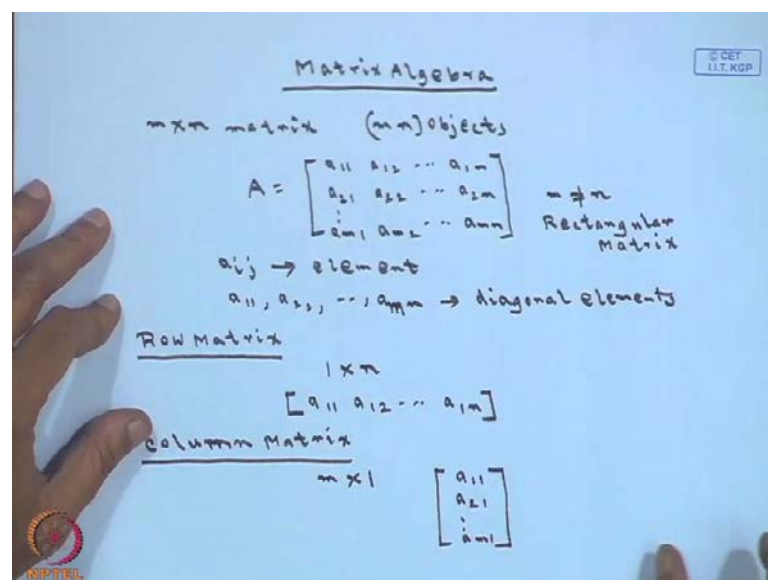 Matrix Algebra
© CET
I.I.T. KGP
m×n matrix (mn) objects
A = [ a11 a12 ... a1n
a21 a22 ... a2n
⋮
am1 am2 ... amn ]
m ≠ n
Rectangular
Matrix
aij → element
a11, a22, ..., amm → diagonal elements
Row Matrix
1×n
[ a11 a12 ... a1n ]
Column Matrix
m×1
[ a11
a21
⋮
am1 ]
NPTEL